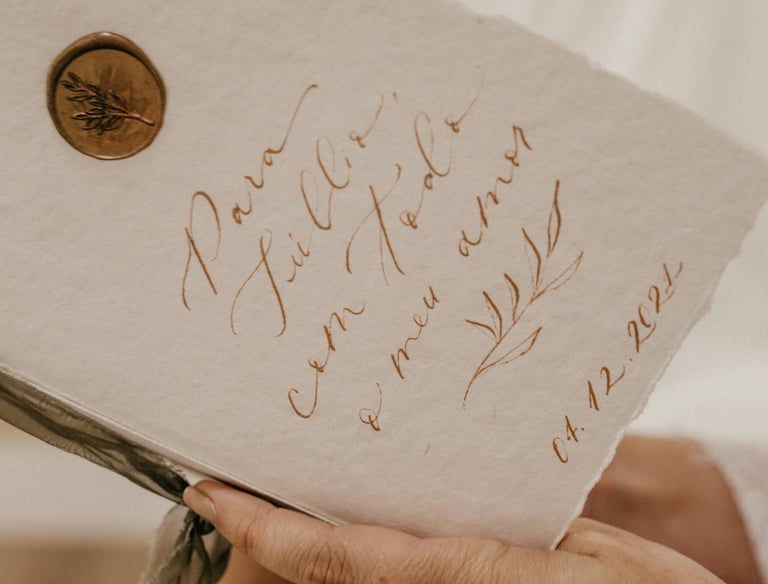 Para
Túllio,
com todo
o meu amor
04.12.2021